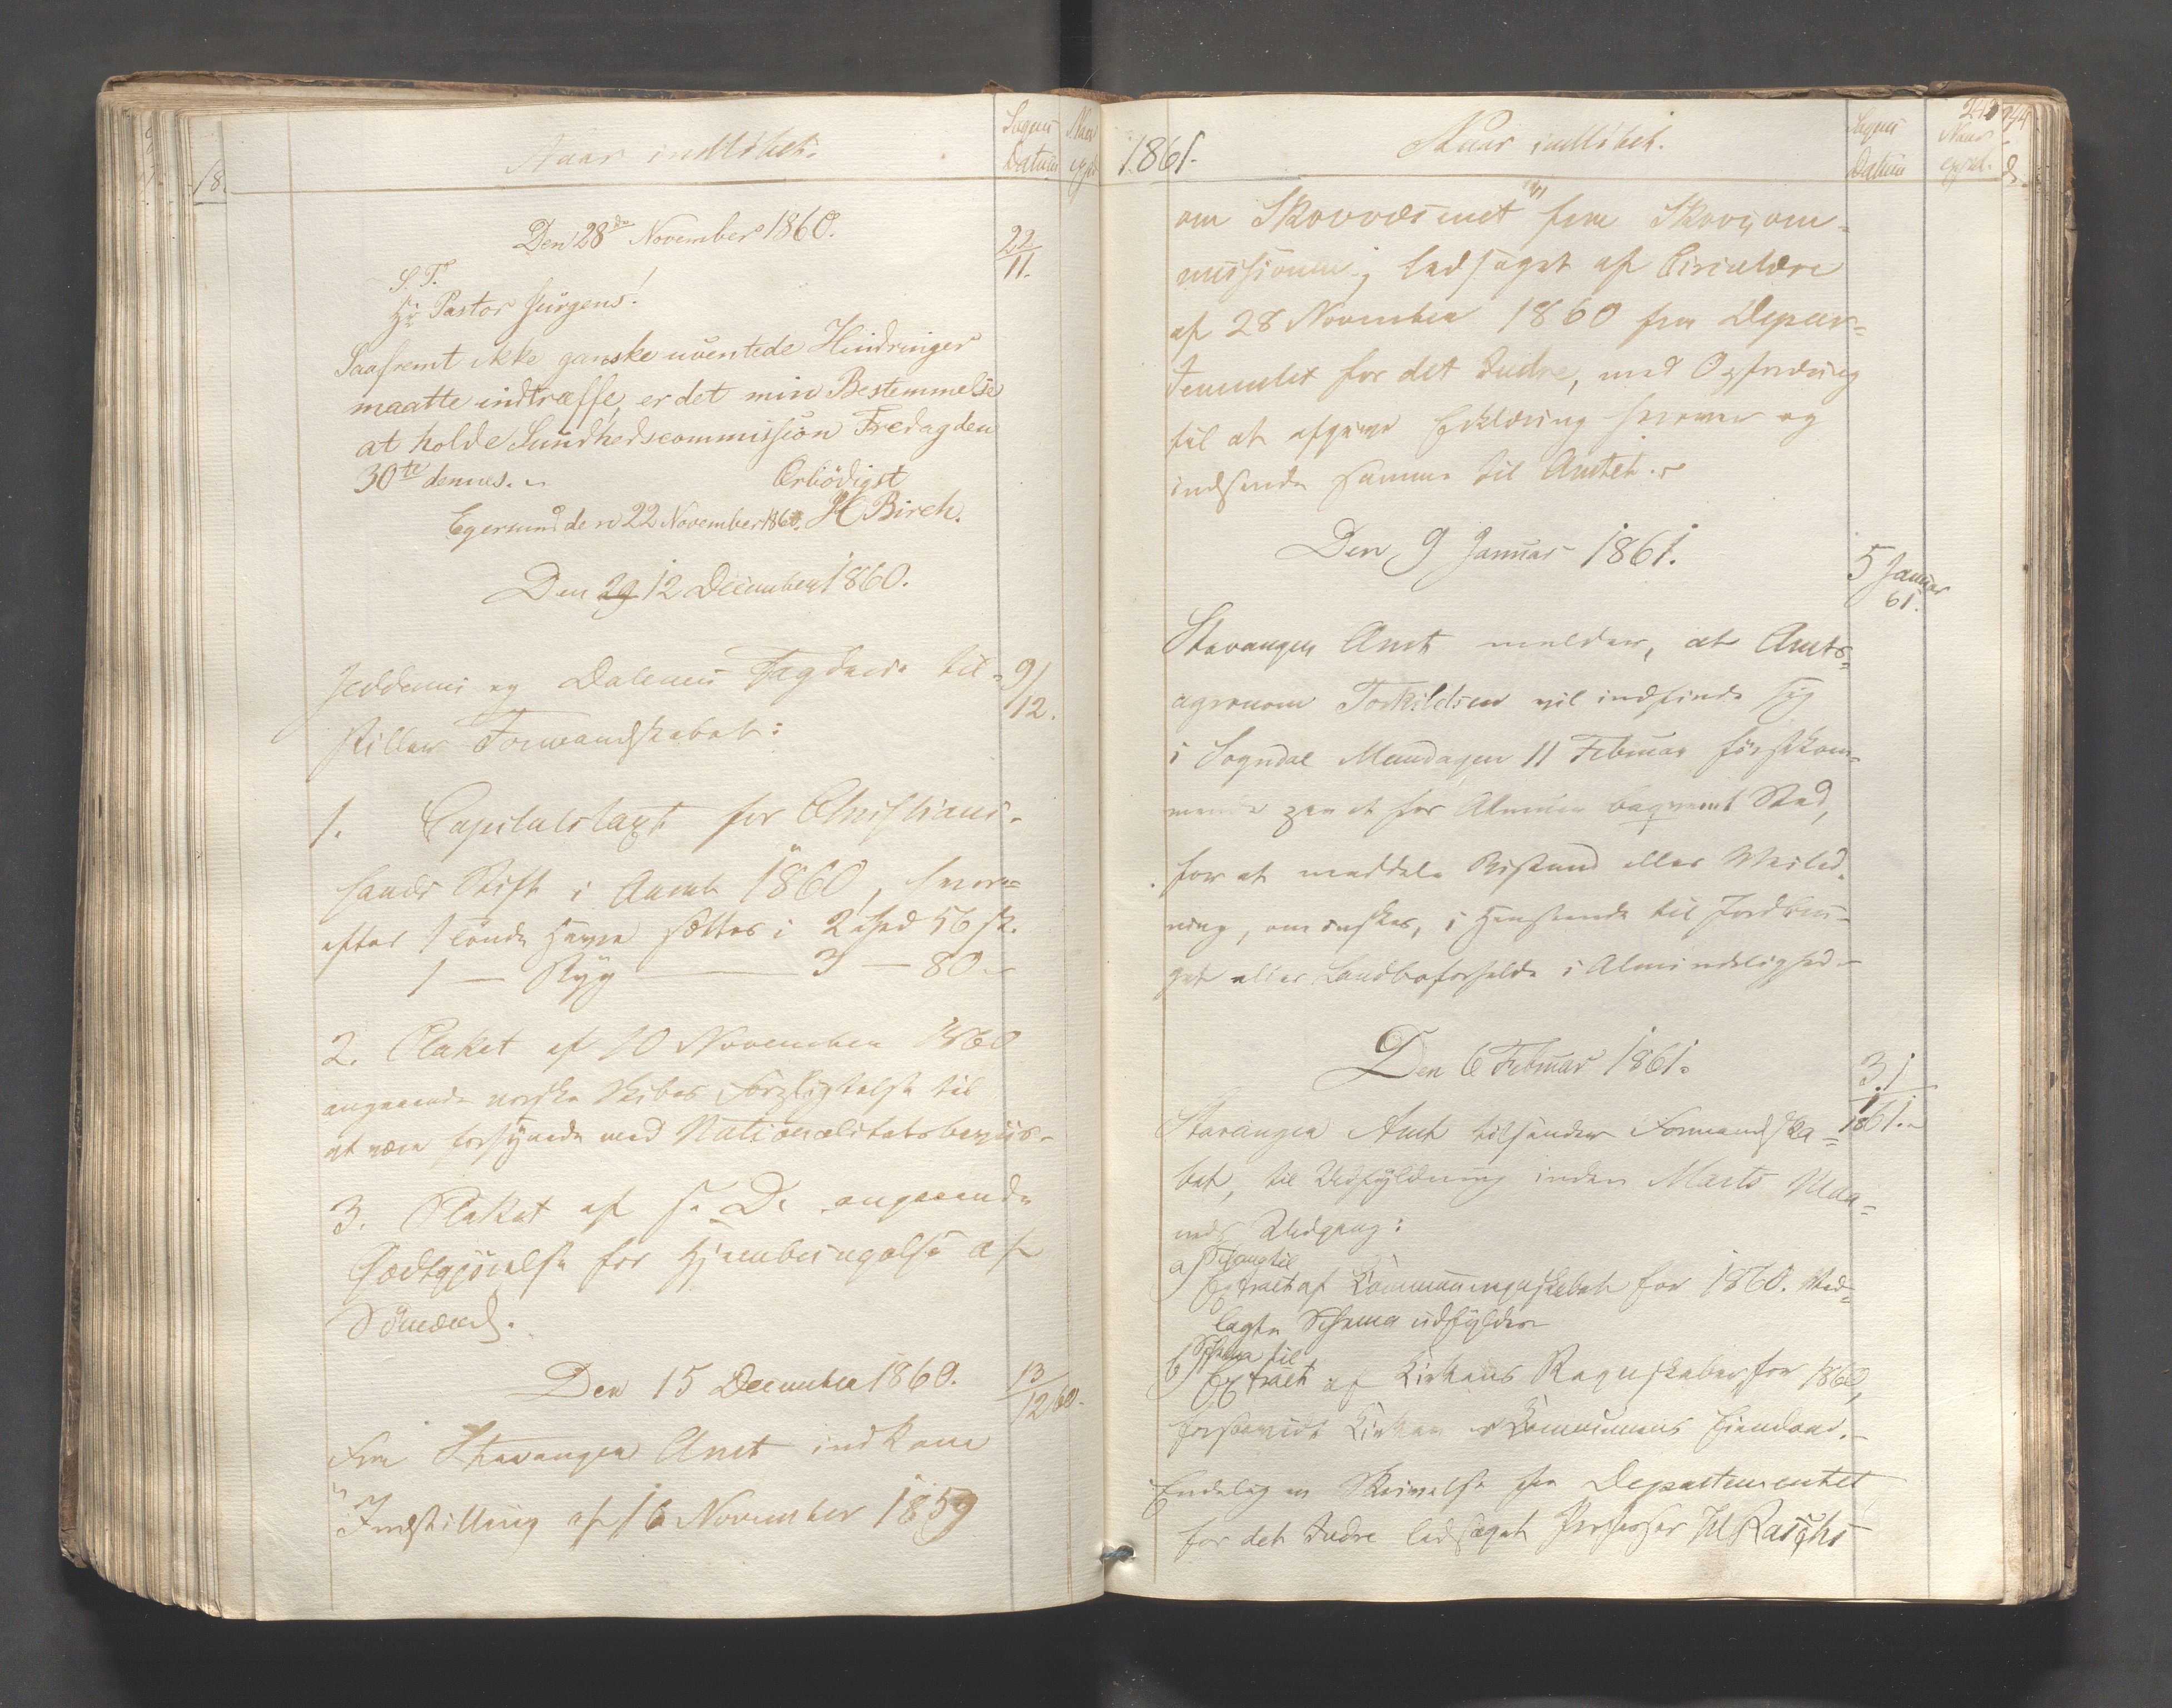 Naar indlöbet.
Sagens
Datum
Naar
exped
18.
Den 28de November 1860.
22/11.
S. T.
Hr Pastor Jürgens!
Saafremt ikke ganske uventede Hindringer
maatte indtræffe, er det min Bestemmelse
at holde Sundhedscommission Fredag den
30te dennes.
Erbödigst
Egersund den 22 November 1860. H Birch.
Den 29 12 December 1860.
Jedderens og Dalenes Fogderie til-
9/12.
stiller Formandskabet:
1. Capitelstaxt for Christians-
sands Stift i Aaret 1860, hvor-
efter 1 Tönde Havre sættes i 2 Spd 56 sk.
1 — Byg — 3 — 80
2. Plakat af 10 November 1860
angaaende norske Skibes Forpligtelse til
at være forsynede med Nationalitetsbeviis.
3. Plakat af s. D. angaaende
Godtgjörelse for Hjembringelse af
Sömænd.
Den 15 December 1860.
13/12 60.
Fra Stavanger Amt indkom
"Indstilling af 16 November 1859
1861.
Naar indlöbet.
Sagens
Datum
Naar
exped.
om Skovvæsenet" fra Skovcom-
missionen, ledsaget af Circulære
af 28 November 1860 fra Depar-
tementet for det Indre, med Opfordring
til at afgive Erklæring herover og
indsende samme til Amtet.
Den 9 Januar 1861.
5 Januar
61.
Stavanger Amt melder, at Amts-
agronom Torkildsen vil indfinde sig
i Sogndal Mandagen 11 Februar förstkom-
mende paa et for Almuen beqvemt Sted,
for at meddele Bistand eller Veiled-
ning, om önskes, i Henseende til Jordbru-
get eller Landboforholde i Almindelighed
Den 6 Februar 1861.
31/1
1861.
Stavanger Amt tilsender Formandska-
bet, til Udfyldning inden Marts Maa-
neds Udgang:
a) Schema til
Extract af Communeregnskabet for 1860. Ved-
lagte Schema udfyldes
b) Schema til
Extract af Kirkens Regnskaber for 1860,
forsaavidt Kirken er Communens Eiendom.
Endelig en Skrivelse fra Departementet
for det Indre ledsaget Professor H Raschs